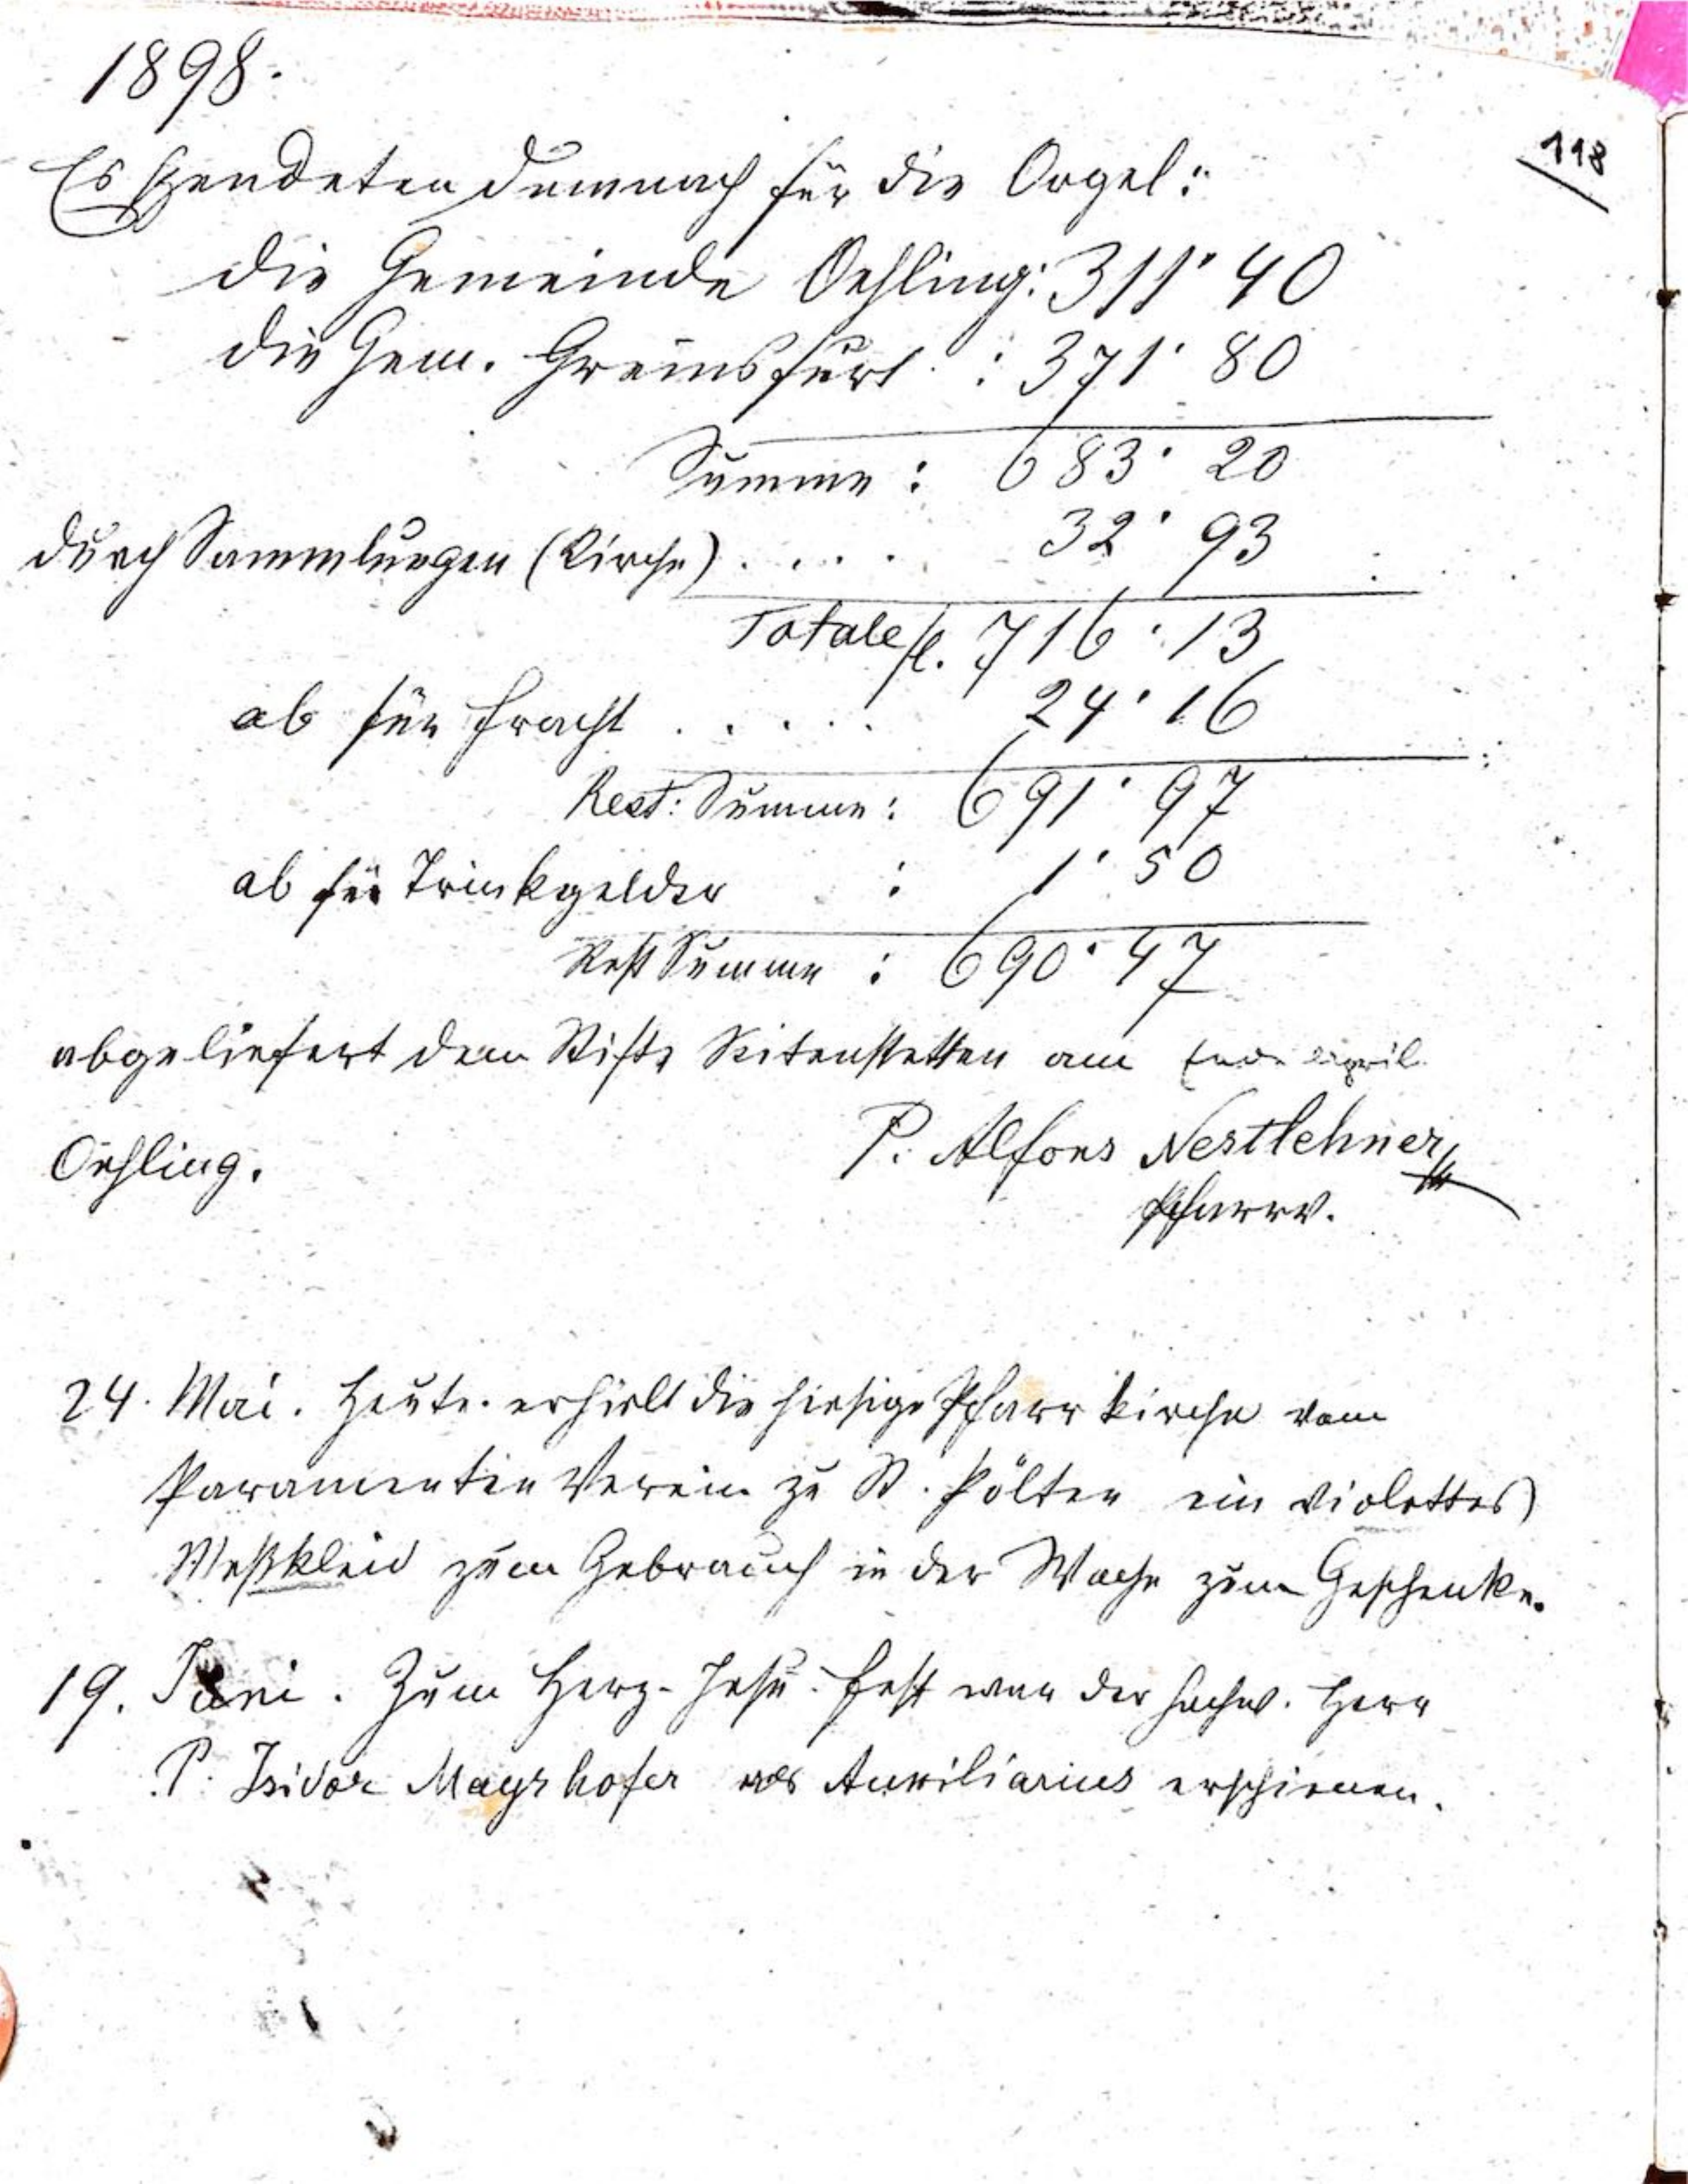 1898.
118
Es spendeten demnach für die Orgel:
die Gemeinde Oehling: 311·40
die Gem. Greinsfurt : 371·80
Summe : 683·20
durch Sammlungen (Kirche) .... 32·93
Totale fl. 716·13
ab für Fracht ..... 24·16
Rest: Summe: 691·97
ab für Trinkgelder : 1·50
Rest Summe : 690·47
abgeliefert dem Stifte Seitenstetten am Ende April
P. Alfons Nestlehner
Oehling.
Pfarrv.
24. Mai. Heute erhielt die hiesige Pfarrkirche vom
Paramenten Verein zu St. Pölten ein violettes
Meßkleid zum Gebrauch in der Woche zum Geschenke.
19. Juni. Zum Herz-Jesu-Fest war der hochw. Herr
P. Isidor Mayrhofer als Auxiliarius erschienen.